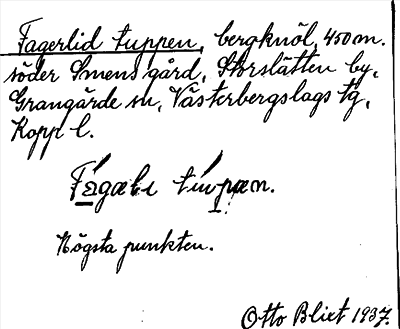 Fagerlid tuppen, bergknöl, 450 m.
söder Smens gård, Storslätten by,
Grangärde sn, Västerbergslags tg,
Kopp l.
tv́pæn.
Högsta punkten.
Otto Blixt 1937.